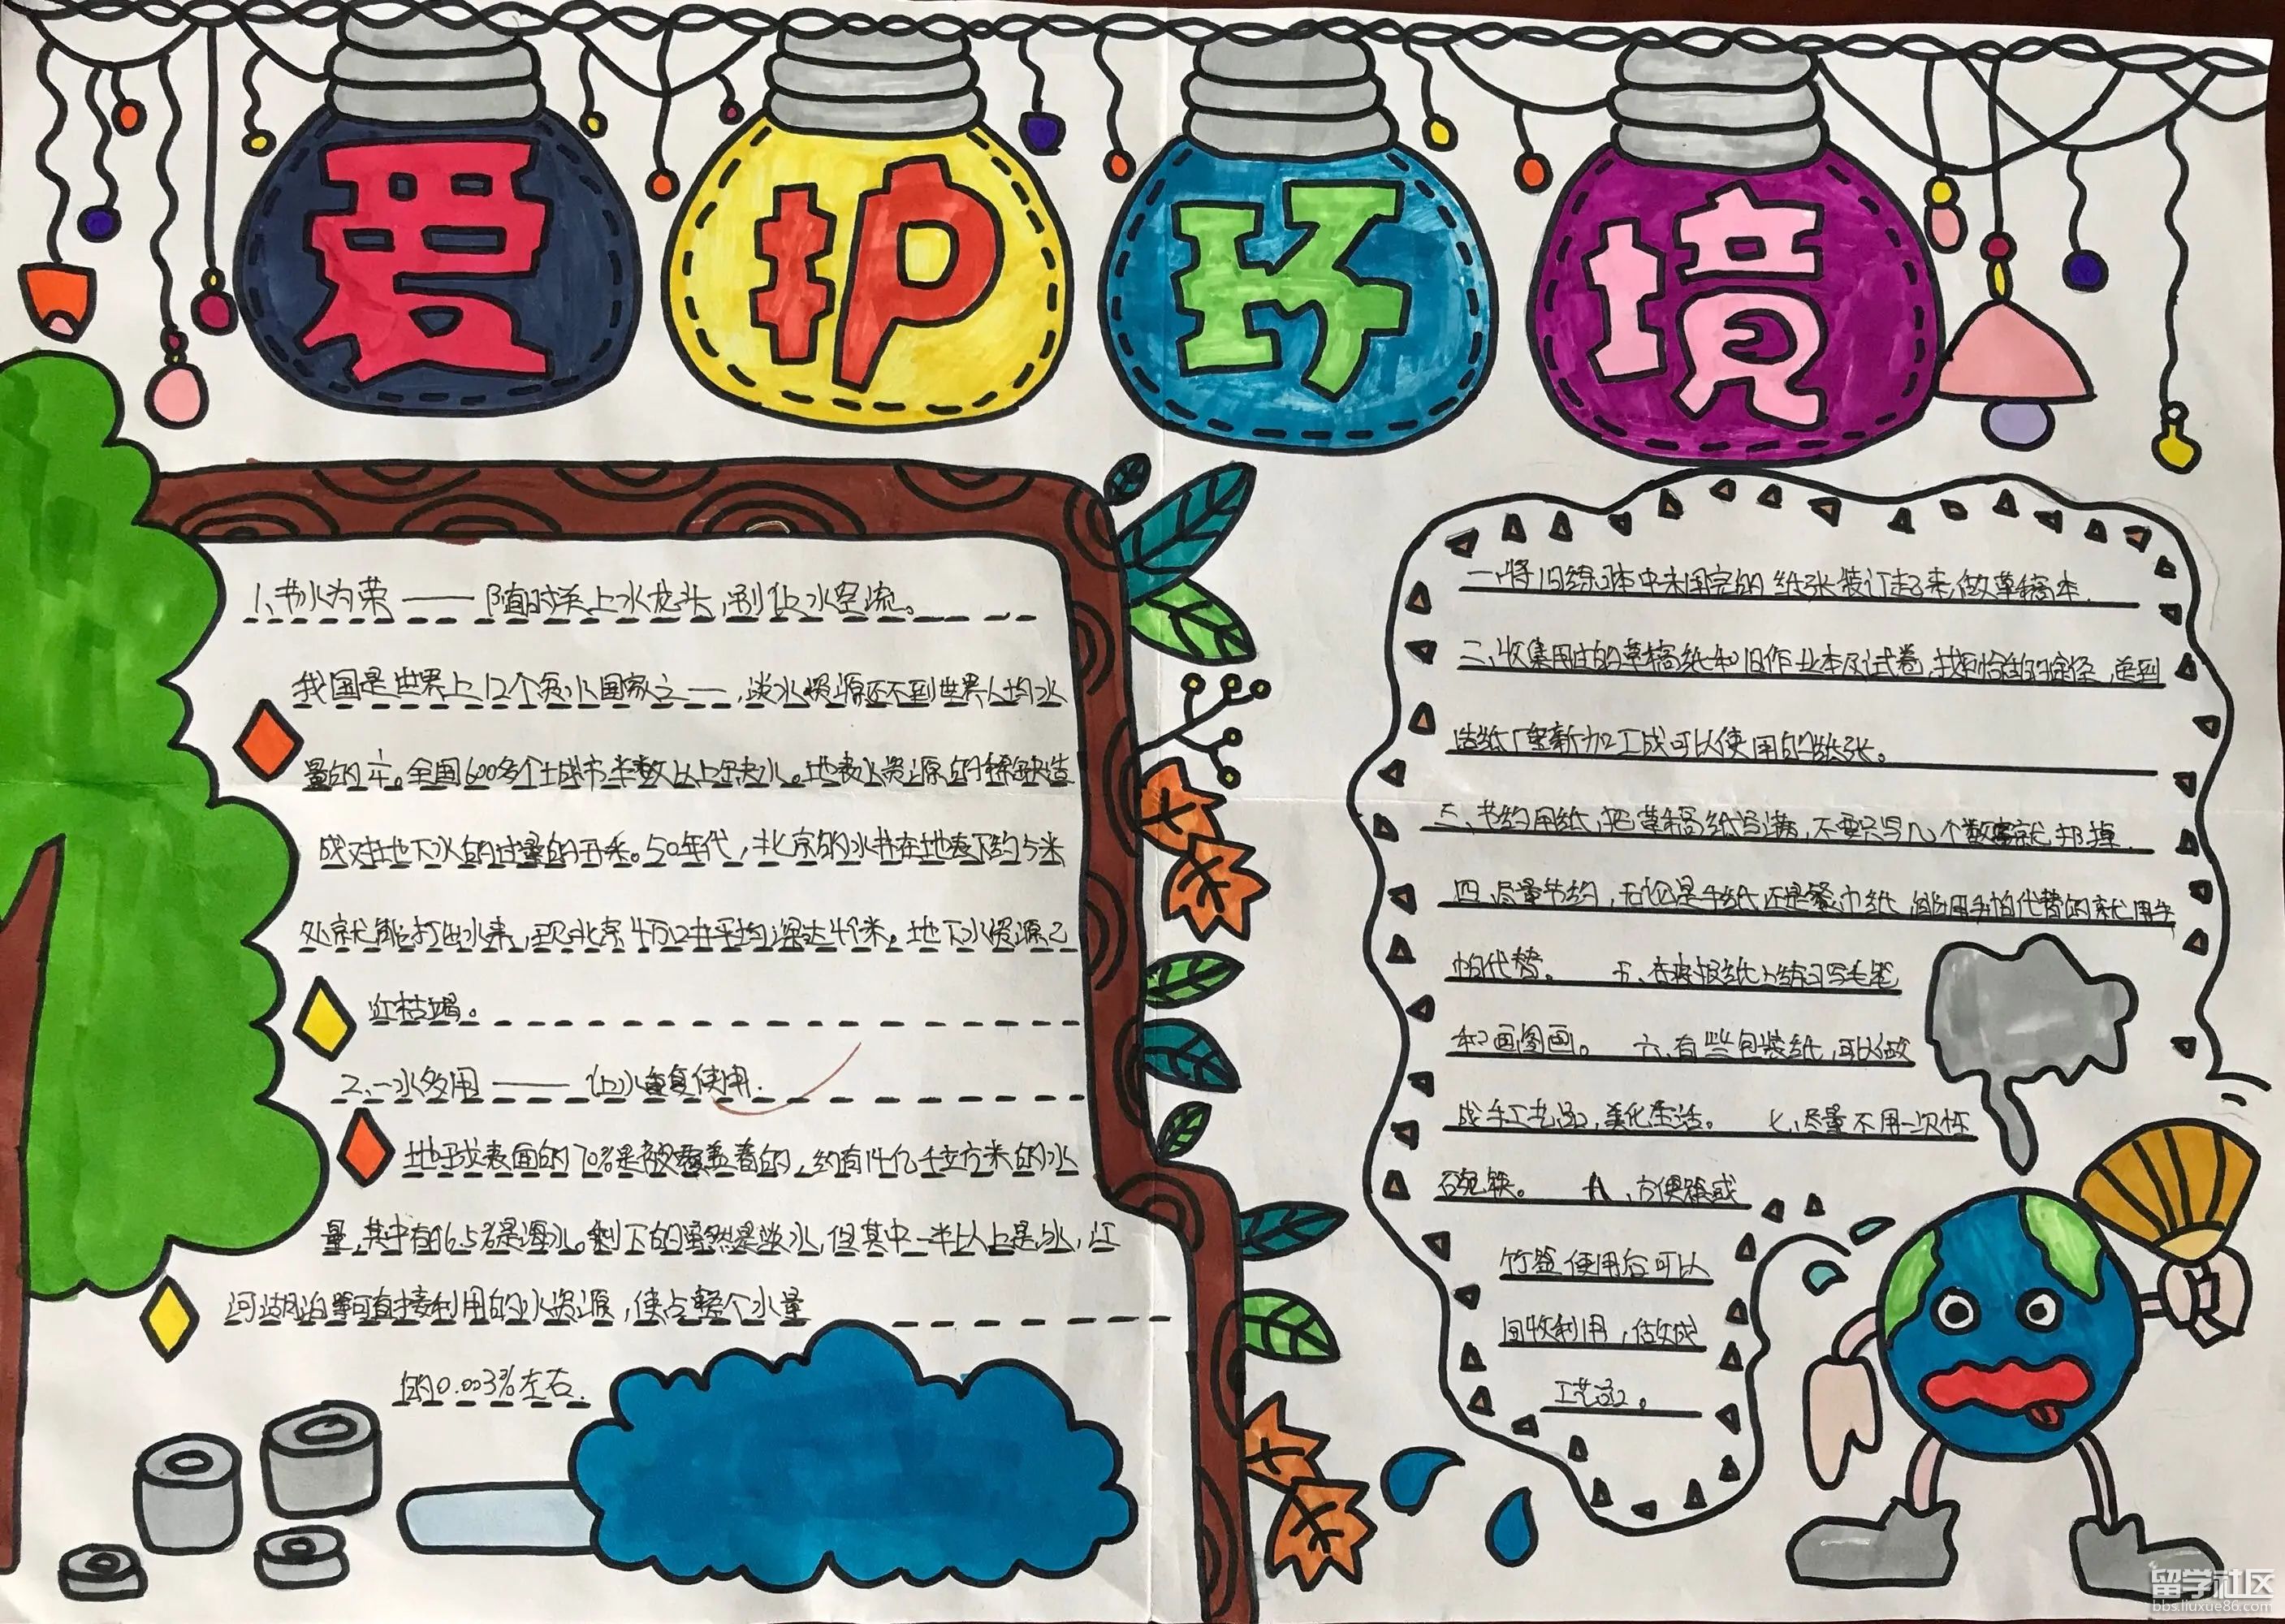 爱护环境
1、节水为荣——随时关上水龙头,别让水空流。
我国是世界上12个贫水国家之一,淡水资源还不到世界人均水
量的。全国600多个城市半数以上缺水。地表水资源的稀缺造
成对地下水的过量的开采。50年代,北京的水井在地表下约5米
处就能打出水来,现北京4万口井平均深达49米。地下水资源已
近枯竭。
2、一水多用——让水重复使用.
地球表面的70%是被覆盖着的、约有14亿千立方米的水
量,其中有96.5%是海水。剩下的虽然是淡水,但其中一半以上是冰,江
河湖泊等可直接利用的水资源,使占整个水量
的0.003%左右.
一、将旧练习本中未用完的纸张装订起来,做草稿本.
二、收集用过的草稿纸和旧作业本及试卷,找恰当的途径,送到
造纸厂重新加工成可以使用的纸张。
三、节约用纸,把草稿纸写满,不要只写几个数字就扔掉.
四、尽量节约,无论是手纸还是餐巾纸,能用手帕代替的就用手
帕代替。 五、在废报纸上练习写毛笔
和画图画。 六、有些包装纸,可以做
成手工艺品,美化生活。 七、尽量不用一次性
碗筷。 八、方便筷或
竹签使用后可以
回收利用,
工艺品。
留学社区
bbs.liuxue86.com